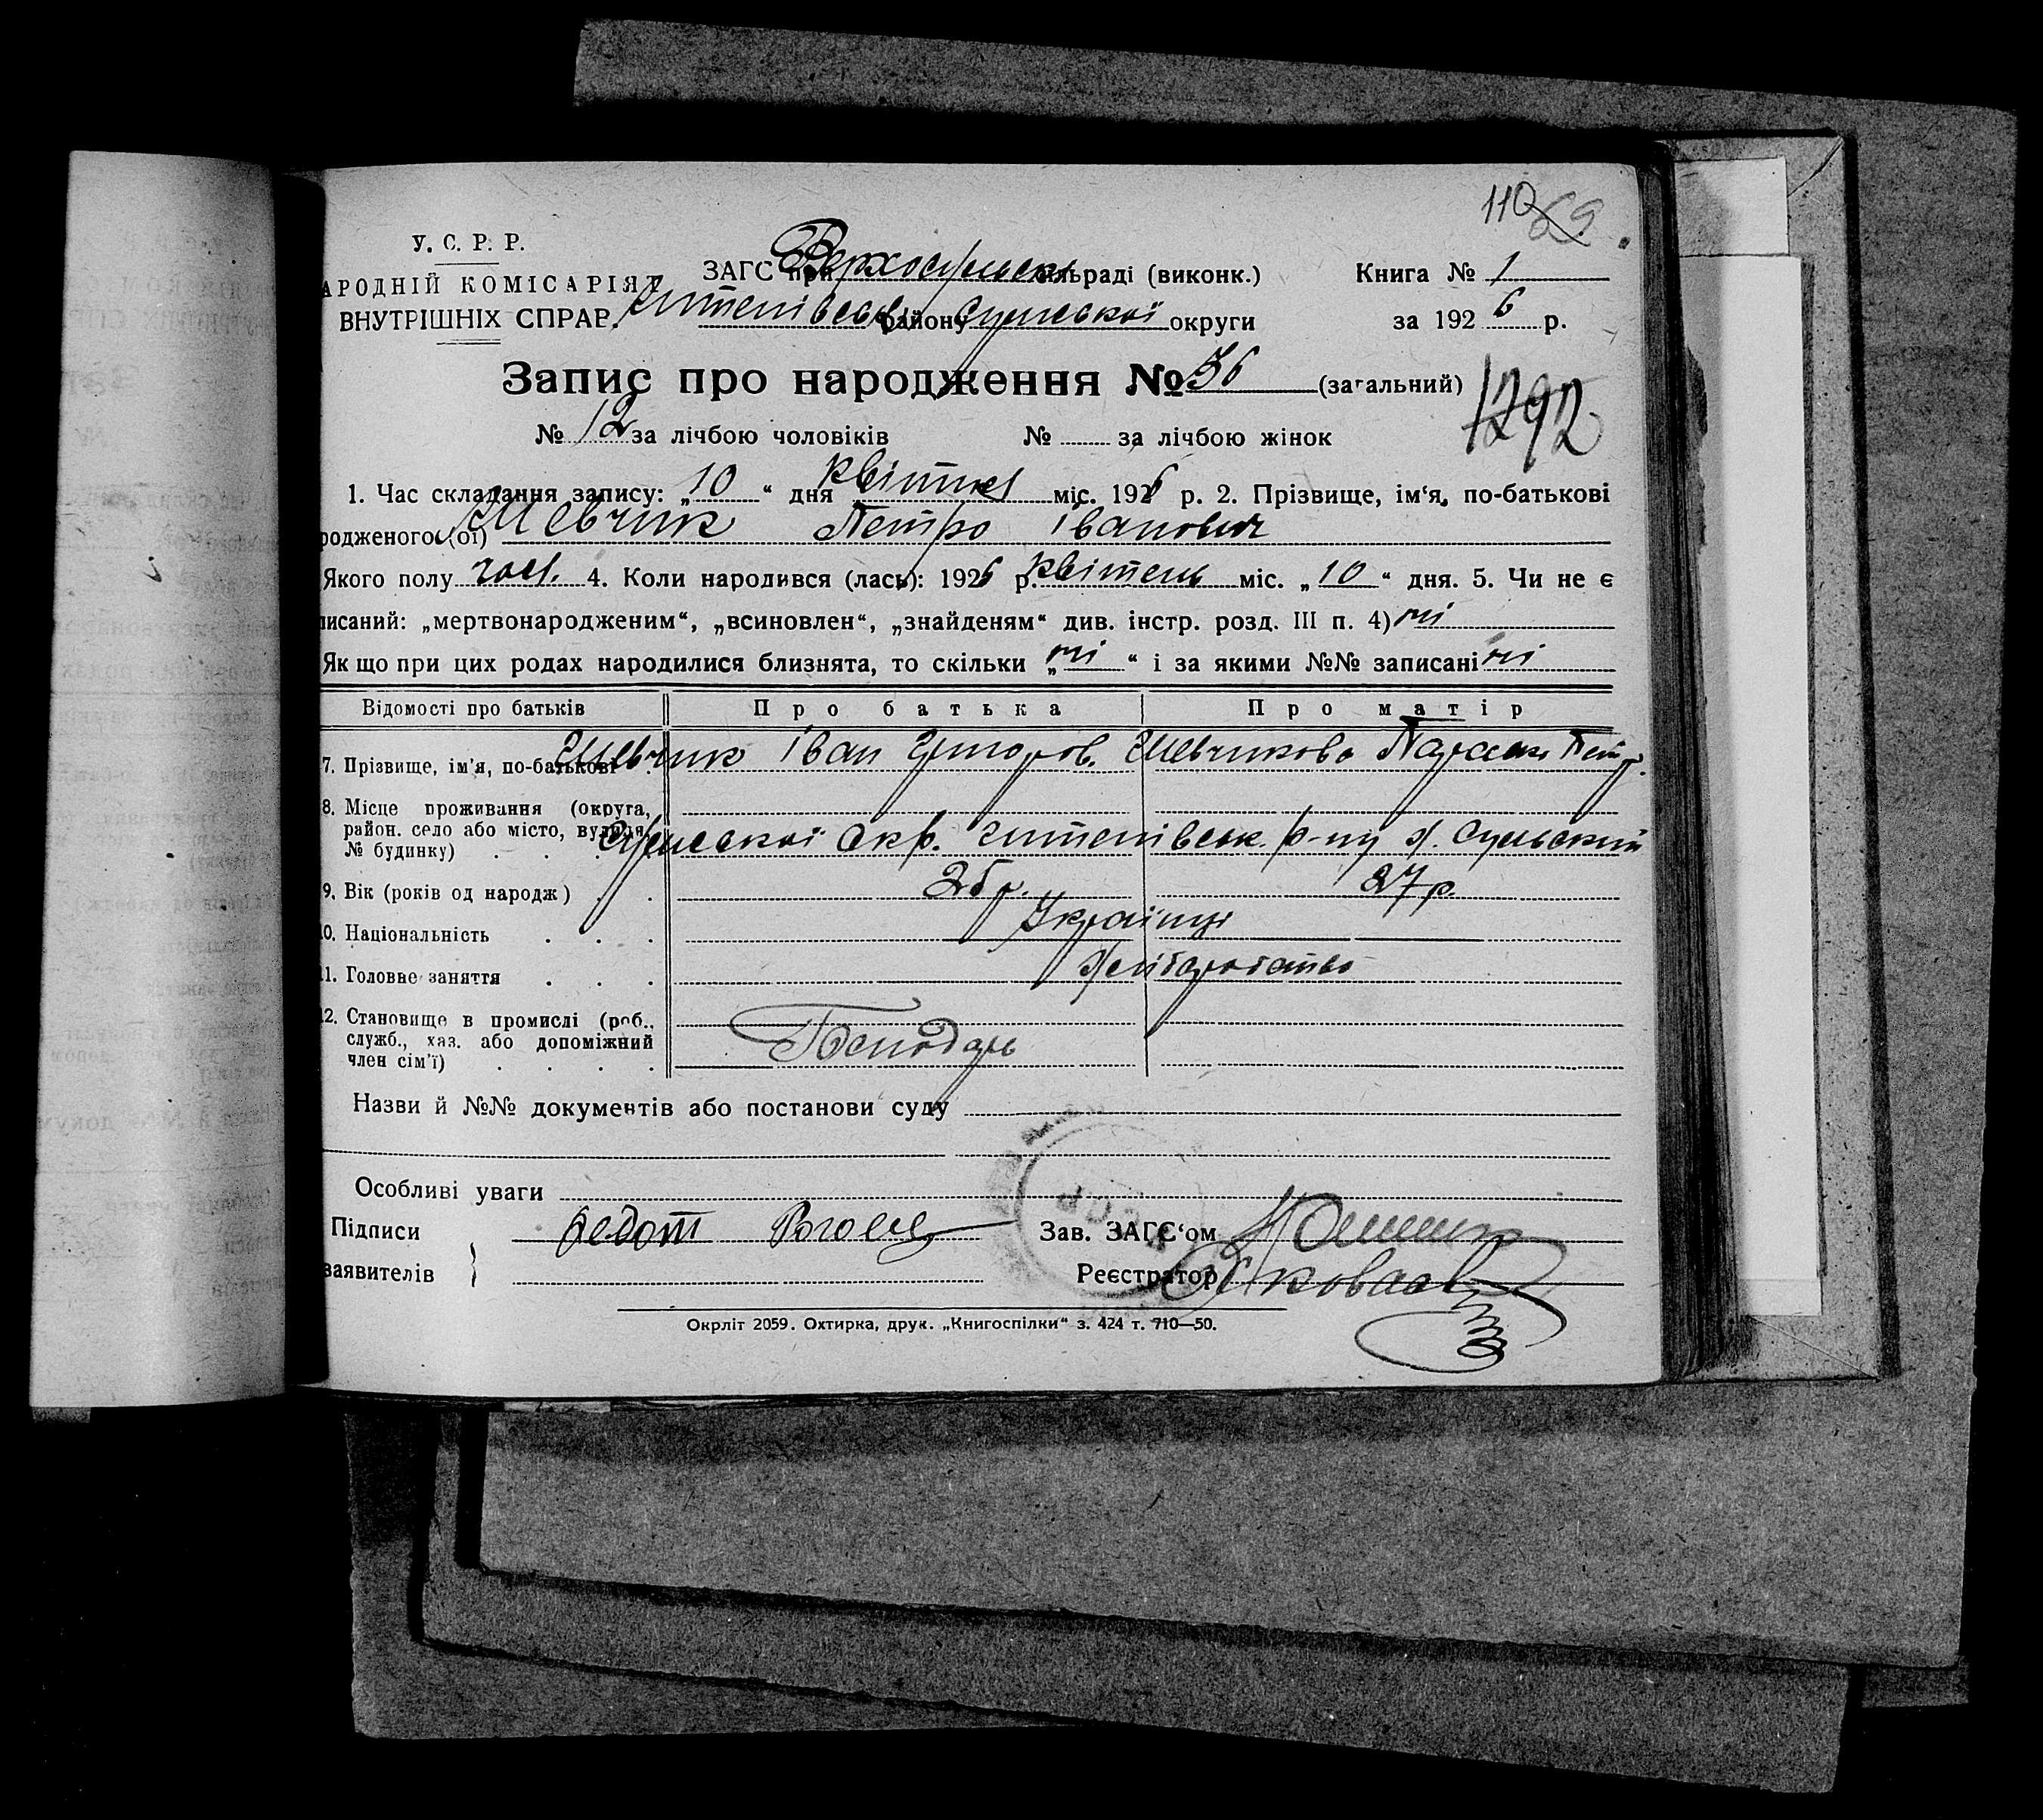 110 69
У. С. Р. Р.
АРОДНІЙ КОМІСАРІЯТ
ВНУТРІШНІХ СПРАВ.
ЗАГС при Верхосульськ сільраді (виконк.)
Штепівськ району Сумської округи
Книга № 1
за 1926 р.
Запис про народження № 36 (загальний)
1292
№ 12 за лічбою чоловіків № за лічбою жінок
1. Час складання запису: „10“ дня квітня міс. 1926 р. 2. Прізвище, ім‘я, по-батькові
родженого (ої) Шевчик Петро Іванович
Якого полу чол. 4. Коли народився (лась): 1926 р. квітень міс. „10“ дня. 5. Чи не є
писаний: „мертвонародженим“, „всиновлен“, „знайденям“ див. інстр. розд. III п. 4) ні
Як що при цих родах народилися близнята, то скільки „ні“ і за якими №№ записані ні
Відомості про батьків Про батька Про матір
7. Прізвище, ім'я, по-батькові Шевчик Іван Григоров. Шевчикова Параска Петр.
8. Місце проживання (округа,
район. село або місто, вулиця,
№ будинку) Сумської Окр. Штепівськ. р-ну х. Сульський
9. Вік (років од народж) 25 р. 27 р.
10. Національність Українці
11. Головне заняття Хліборобство
12. Становище в промислі (роб.,
служб., хаз. або допоміжний
член сім'ї) Господарь
Назви й №№ документів або постанови суду
Особливі уваги
Підписи Федот
заявителів
Зав. ЗАГС‘ом
Реєстратор
Окрліт 2059. Охтирка, друк. „Книгоспілки“ з. 424 т. 710—50.